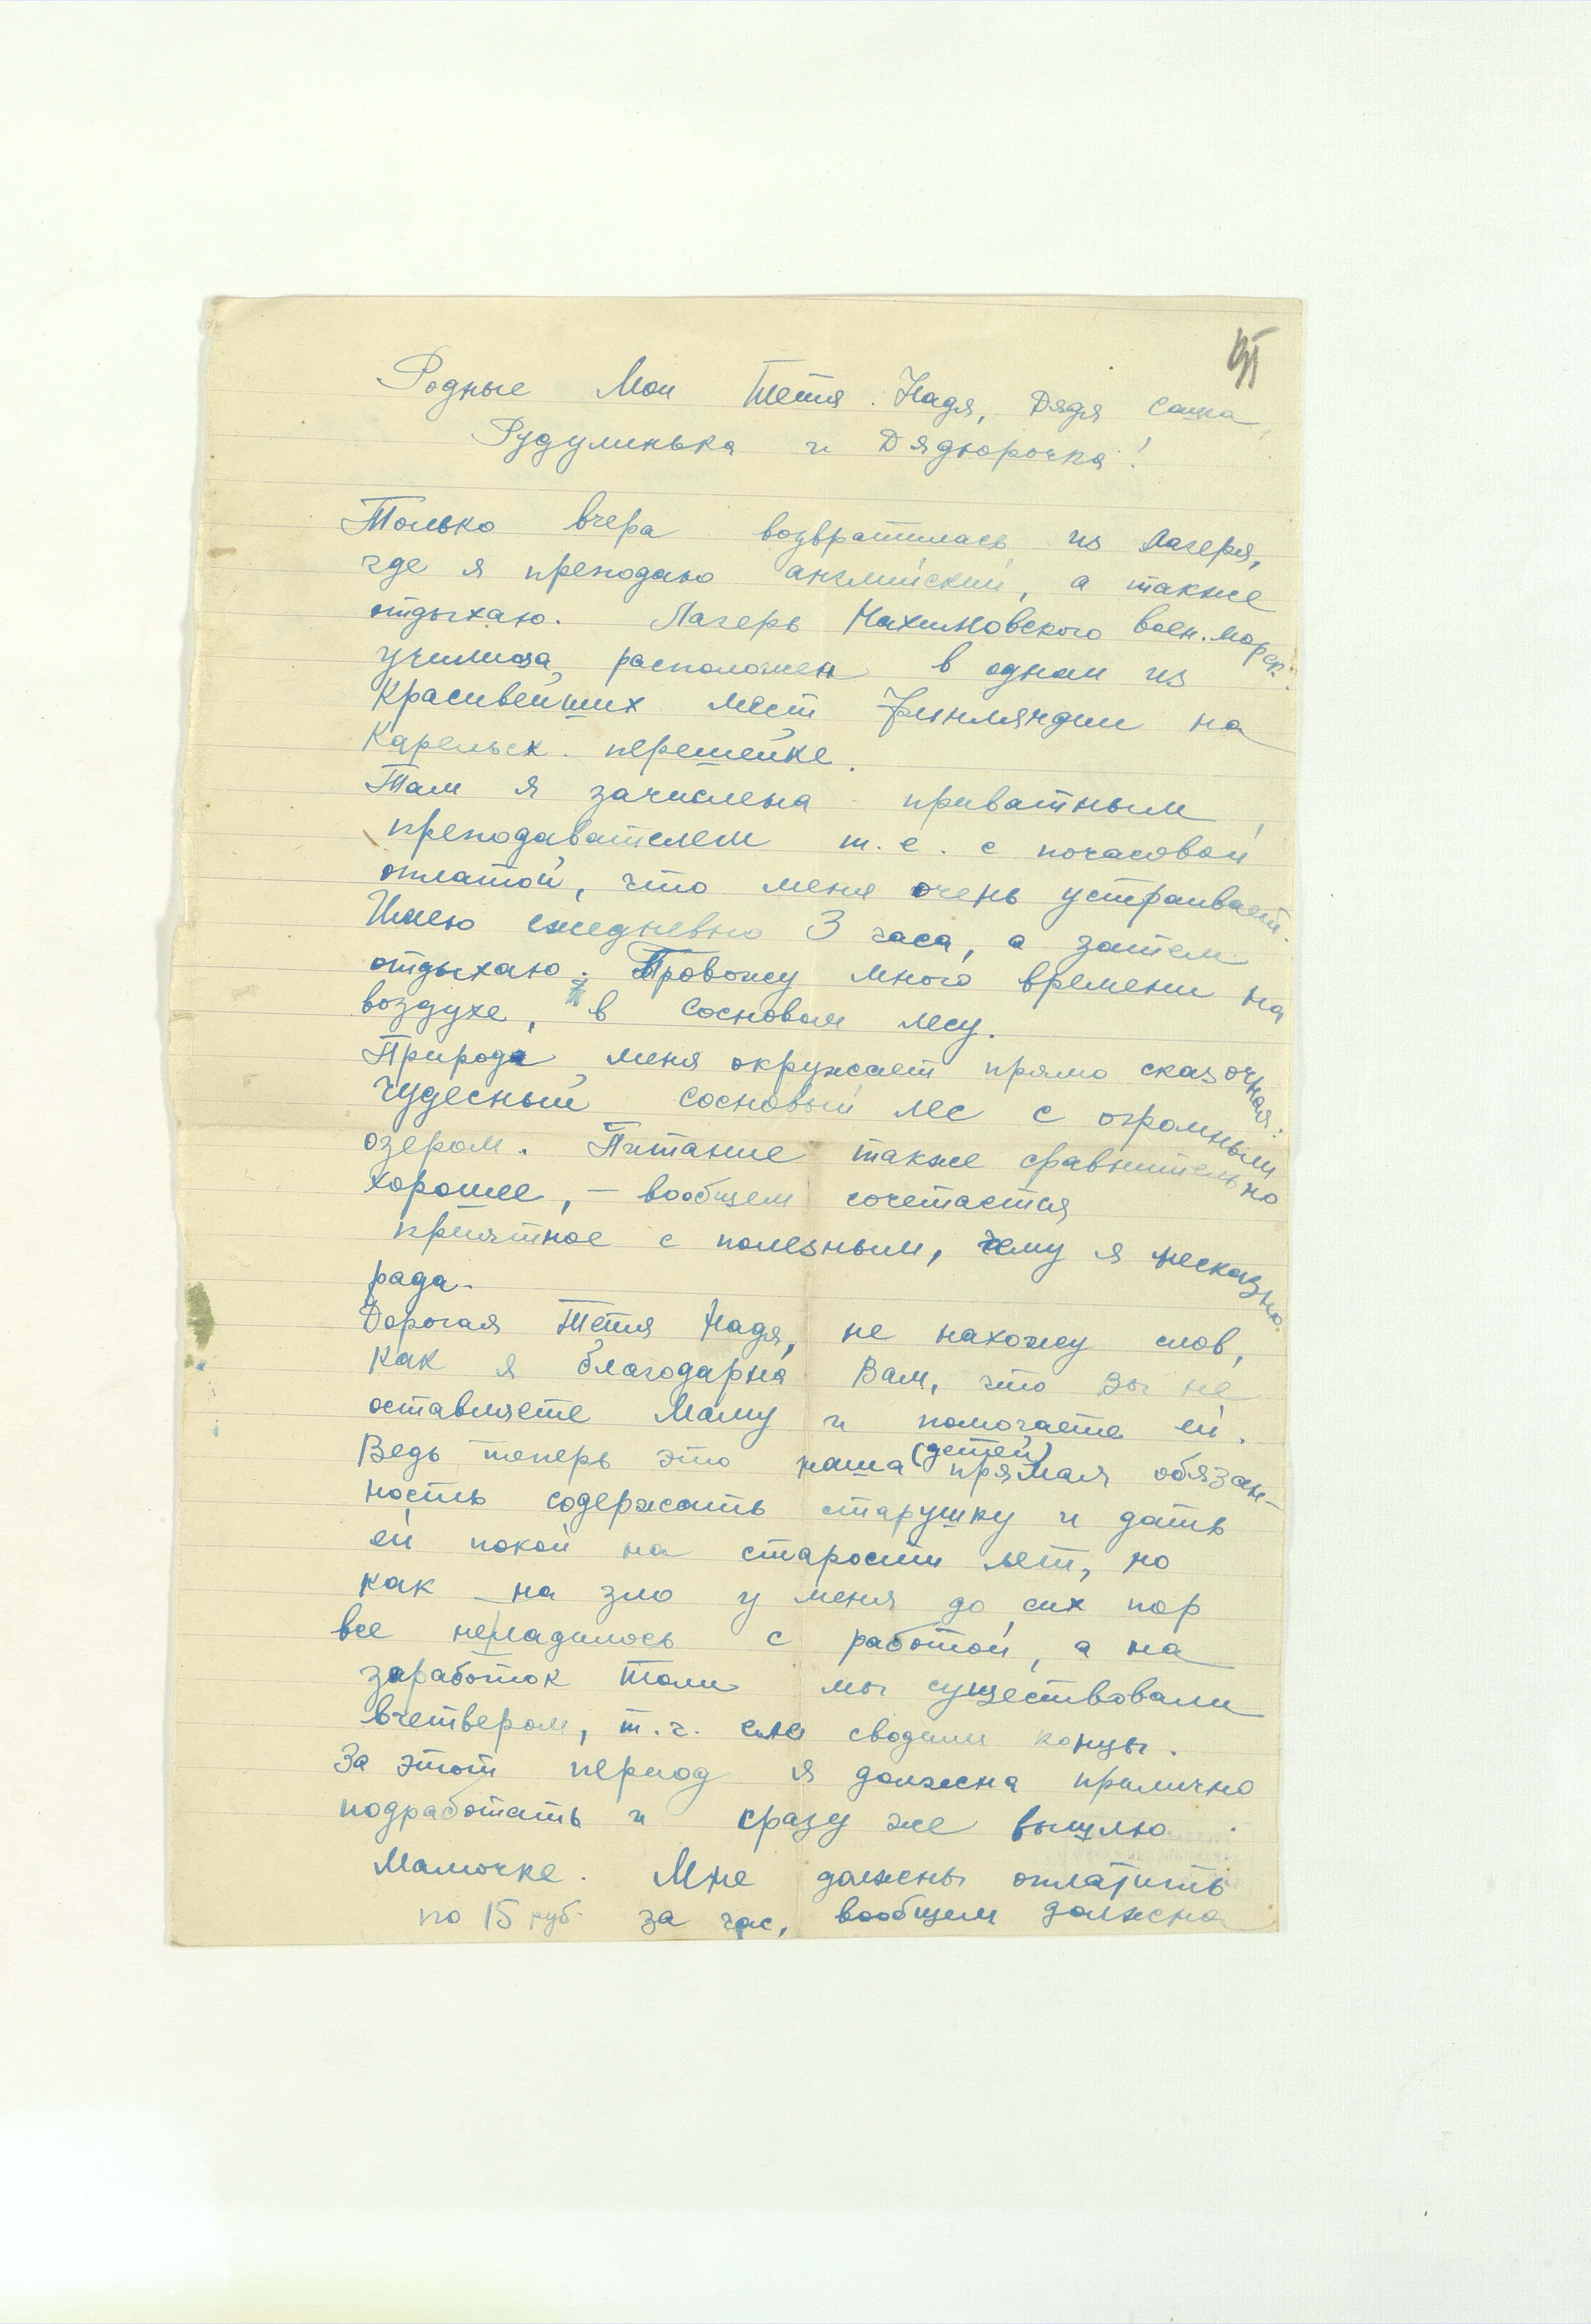 Родные Мои Тетя Надя, Дядя Саша,
Рудулинька и Дядюрочка!
Только вчера возвратилась из лагеря,
где я преподаю английский, а также
отдыхаю. Лагерь Нахимовского воен. морск.
училища, расположен в одном из
красивейших мест Финляндии на
Карельск. перешейке.
Там я зачислена приватным
преподавателем т. е. с почасовой
оплатой, что меня очень устраивает.
Имею ежедневно 3 часа, а затем
отдыхаю. Провожу много времени на
воздухе, в сосновом лесу.
Природа меня окружает прямо сказочная:
чудесный сосновый лес с огромным
озером. Питание также сравнительно
хорошее, – вообщем сочетается
приятное с полезным, чему я несказно
рада.
Дорогая Тетя Надя, не нахожу слов,
как я благодарна Вам, что Вы не
оставляете Маму и помогаете ей.
Ведь теперь это наша (детей) прямая обязан-
ность содержать старушку и дать
ей покой на старости лет, но
как на зло у меня до сих пор
все неладилось с работой, а на
заработок Толи мы существовали
вчетвером, т. ч. еле сводили концы.
За этот период я должна прилично
подработать и сразу же вышлю
Мамочке. Мне должны оплатить
по 15 руб. за час, вообщем должна